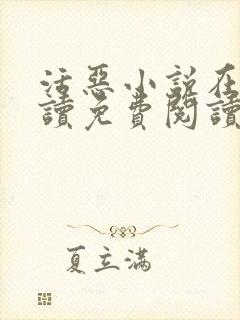 活惡小說在
讀免費閱讀
夏立滿